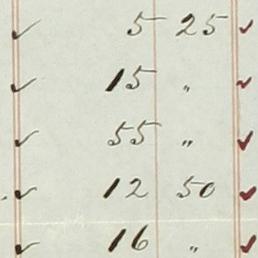 ✓ 5 25 ✓
✓ 15 " ✓
✓ 55 " ✓
✓ 12 50 ✓
✓ 16 " ✓